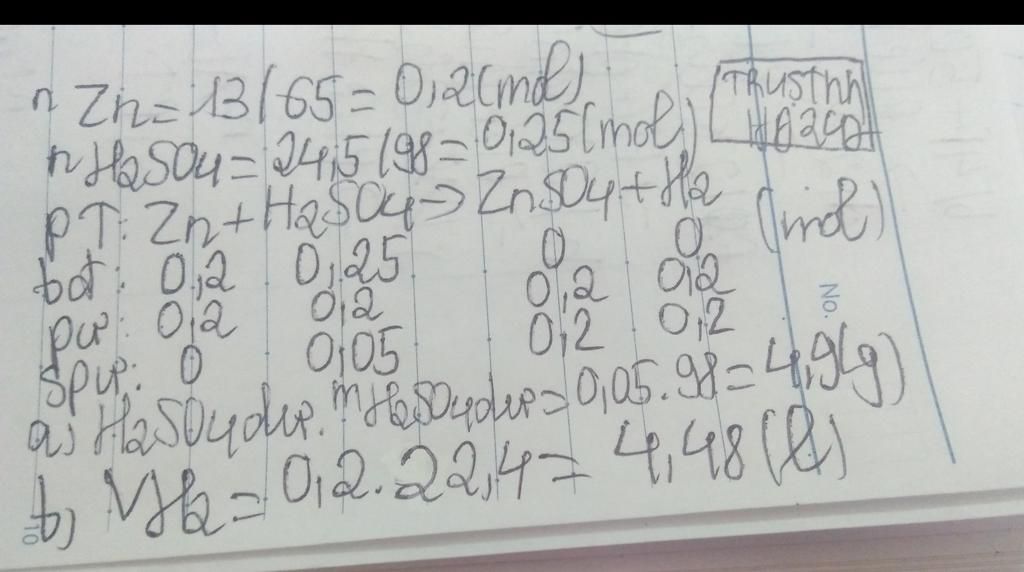 nZn = 13/65 = 0,2 (mol)
nH2SO4 = 24,5/98 = 0,25 (mol)
PT: Zn + H2SO4 → ZnSO4 + H2
bđ: 0,2 0,25 0 0 (mol)
pư: 0,2 0,2 0,2 0,2
Spư: 0 0,05 0,2 0,2
a, H2SO4 dư. mH2SO4 dư = 0,05.98 = 4,9(g)
b, VH2 = 0,2.22,4 = 4,48 (l)
No.
No